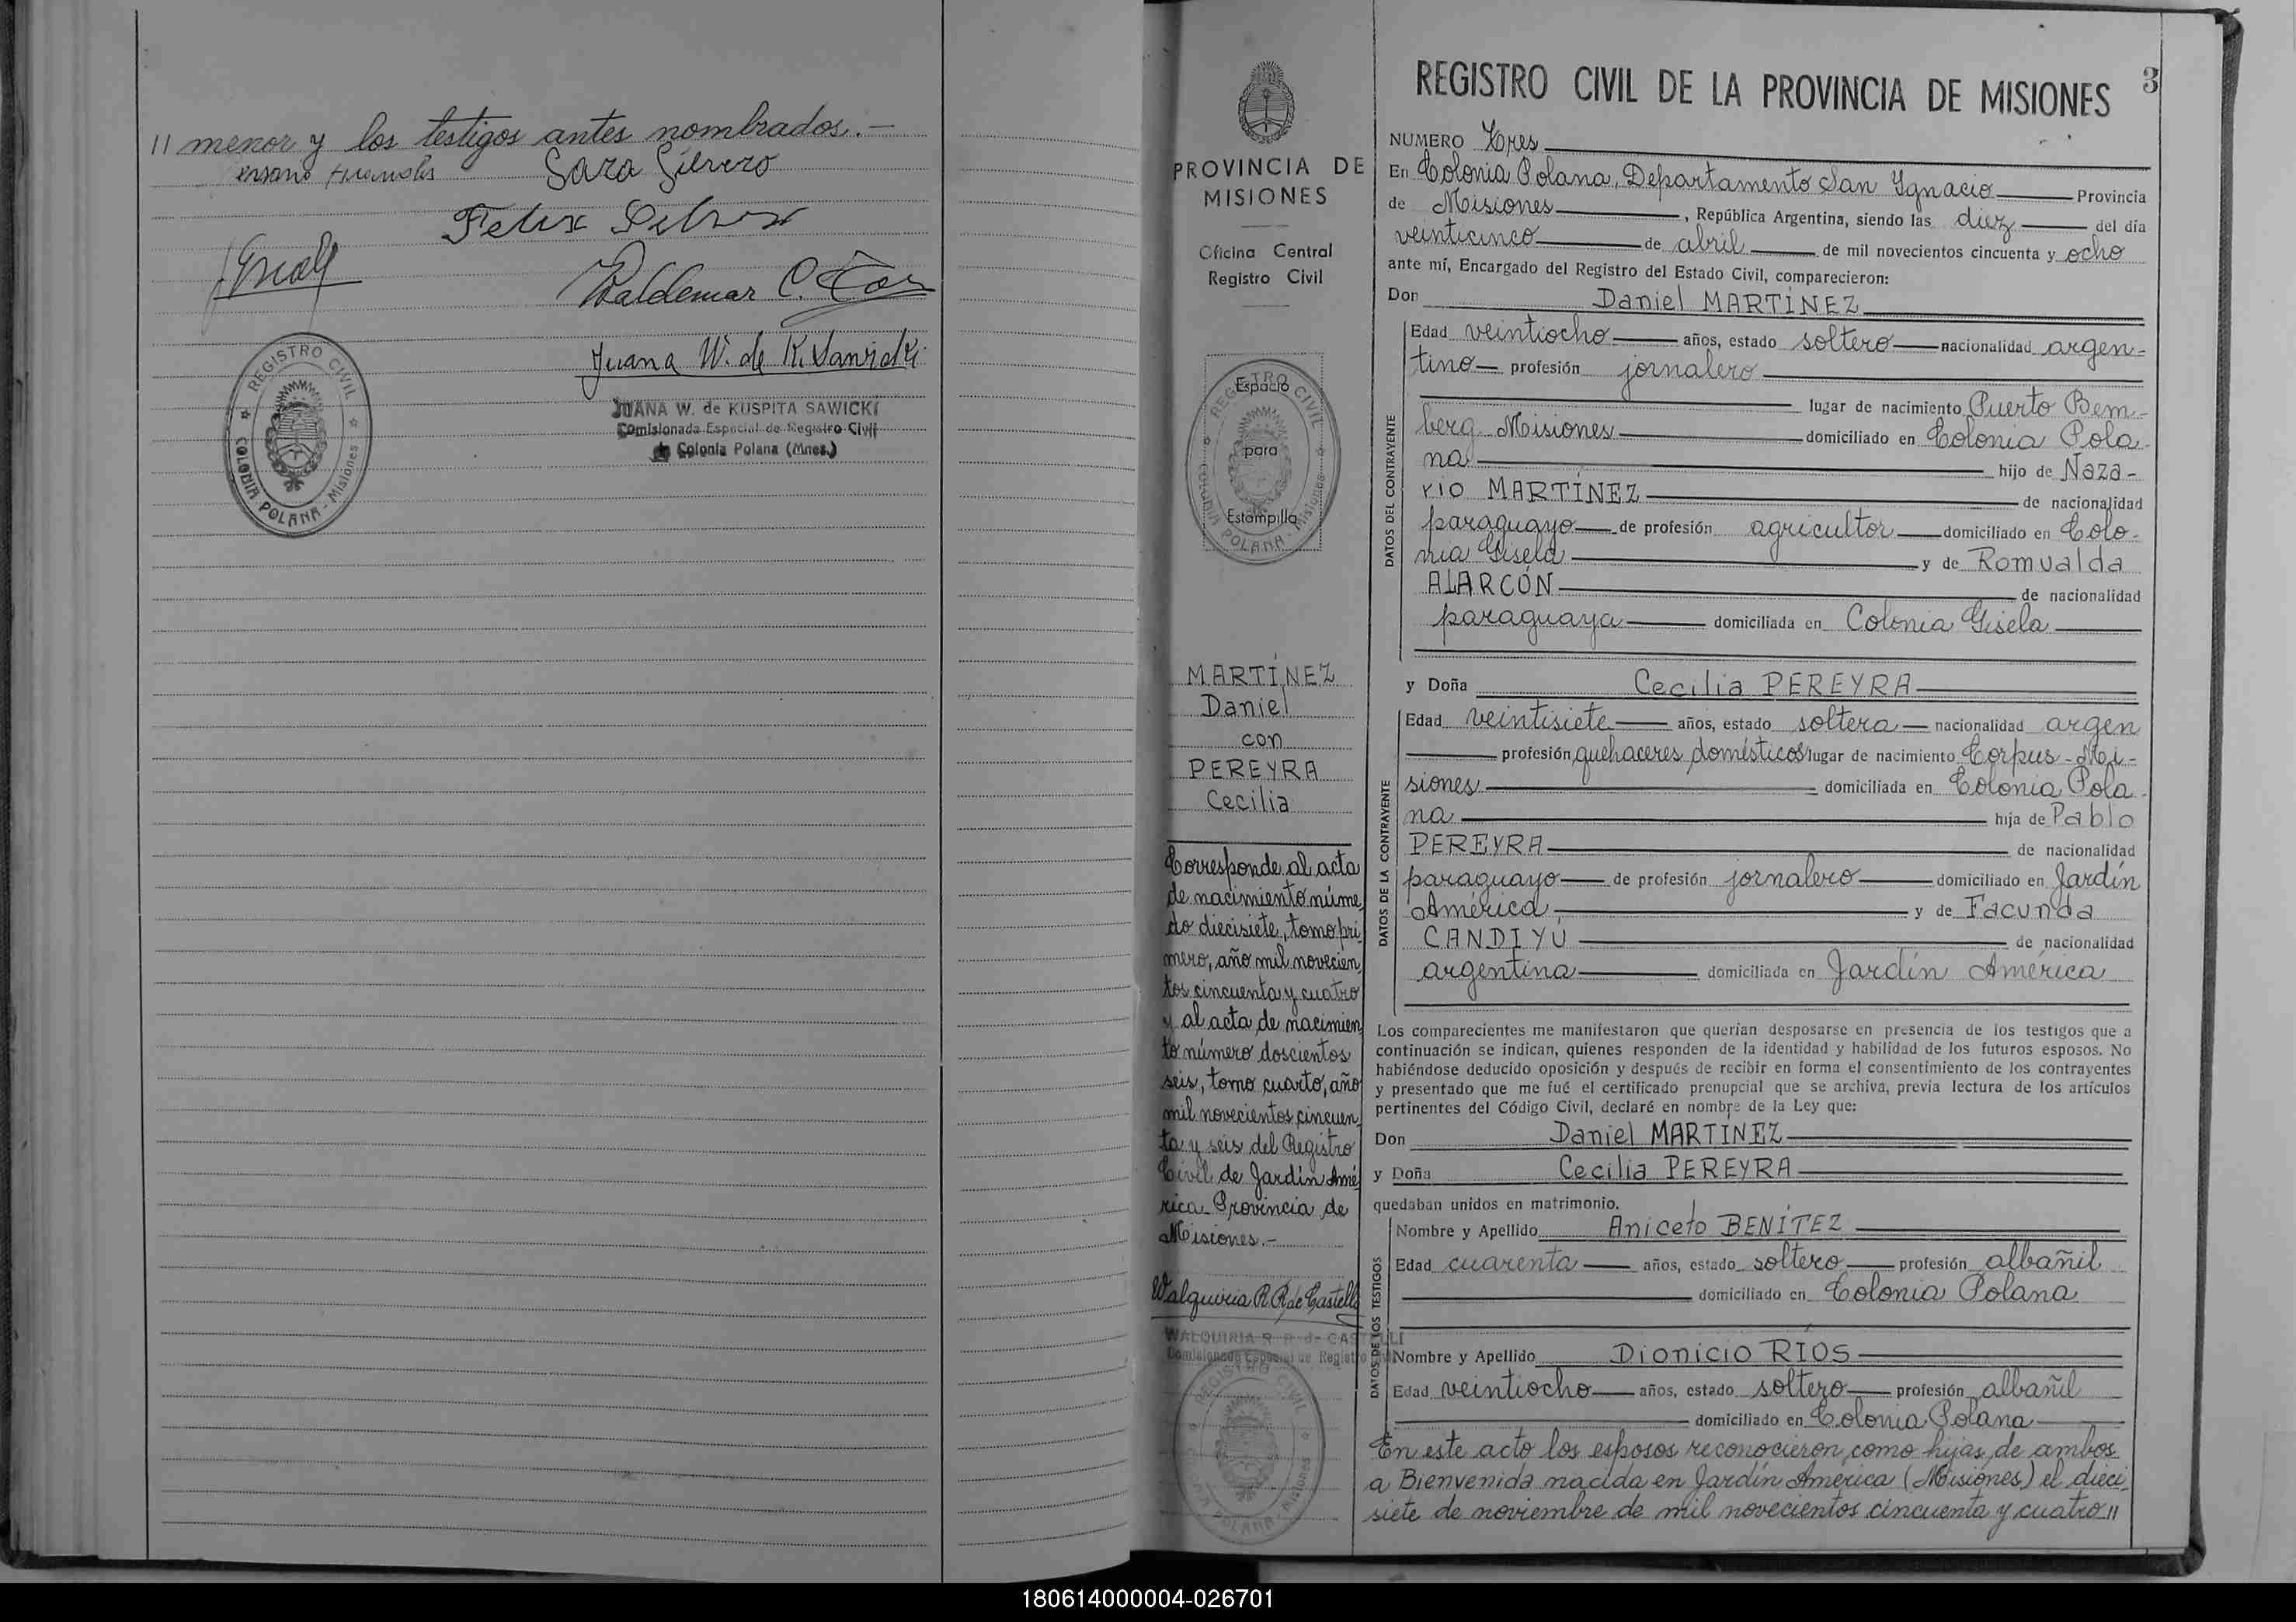 // menor y los testigos antes nombrados.-
Sara
Felix
Waldemar C.
Juana W. de K. Sawicki
JUANA W. de KUSPITA SAWICKI
Comisionada Especial de Registro Civil
de Colonia Polana (Mnes.)
REGISTRO CIVIL
COLONIA POLANA - Misiones
PROVINCIA DE
MISIONES
Oficina Central
Registro Civil
Espacio
para
Estampilla
REGISTRO CIVIL
COLONIA POLANA - Misiones
MARTÍNEZ
Daniel
con
PEREYRA
Cecilia
Corresponde al acta
de nacimiento núme
do diecisiete, tomo pri
mero, año mil novecien
tos cincuenta y cuatro
y al acta de nacimien
to número doscientos
seis, tomo cuarto, año
mil novecientos cincuen
ta y seis del Registro
Civil de Jardín Amé
rica Provincia de
Misiones.-
Walquiria R. R. de Castelli
WALQUIRIA R. R. de CASTELLI
Comisionada Especial de Registro Civil
REGISTRO CIVIL
POLANA - Misiones
REGISTRO CIVIL DE LA PROVINCIA DE MISIONES 3
NUMERO Tres
En Colonia Polana, Departamento San Ygnacio Provincia
de Misiones, República Argentina, siendo las diez del día
veinticinco de abril de mil novecientos cincuenta y ocho
ante mí, Encargado del Registro del Estado Civil, comparecieron:
Don Daniel MARTÍNEZ
DATOS DEL CONTRAYENTE
Edad veintiocho años, estado soltero nacionalidad argen-
tino profesión jornalero
lugar de nacimiento Puerto Bem-
berg Misiones domiciliado en Colonia Pola-
na hijo de Naza-
rio MARTÍNEZ de nacionalidad
paraguayo de profesión agricultor domiciliado en Colo-
nia Gisela y de Romualda
ALARCÓN de nacionalidad
paraguaya domiciliada en Colonia Gisela
y Doña Cecilia PEREYRA
DATOS DE LA CONTRAYENTE
Edad veintisiete años, estado soltera nacionalidad argen
profesión quehaceres domésticos lugar de nacimiento Corpus - Mi-
siones domiciliada en Colonia Pola-
na hija de Pablo
PEREYRA de nacionalidad
paraguayo de profesión jornalero domiciliado en Jardín
América y de Facunda
CANDIYÚ de nacionalidad
argentina domiciliada en Jardín América
Los comparecientes me manifestaron que querían desposarse en presencia de los testigos que a
continuación se indican, quienes responden de la identidad y habilidad de los futuros esposos. No
habiéndose deducido oposición y después de recibir en forma el consentimiento de los contrayentes
y presentado que me fué el certificado prenupcial que se archiva, previa lectura de los artículos
pertinentes del Código Civil, declaré en nombre de la Ley que:
Don Daniel MARTÍNEZ
y Doña Cecilia PEREYRA
quedaban unidos en matrimonio.
DATOS DE LOS TESTIGOS
Nombre y Apellido Aniceto BENÍTEZ
Edad cuarenta años, estado soltero profesión albañil
domiciliado en Colonia Polana
Nombre y Apellido Dionicio RÍOS
Edad veintiocho años, estado soltero profesión albañil
domiciliado en Colonia Polana
En este acto los esposos reconocieron como hijas de ambos
a Bienvenida nacida en Jardín América (Misiones) el dieci
siete de noviembre de mil novecientos cincuenta y cuatro //
180614000004-026701